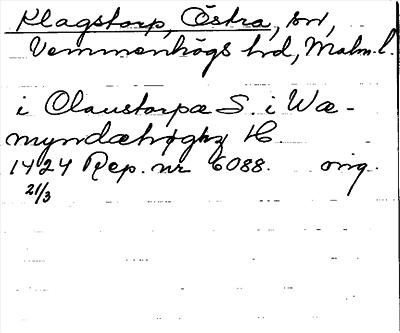 Klagstorp, Östra, sn,
Vemmenhögs hd, Malm. l.
i Claustorpæ S. i Wæ-
myndæhøghz H.
1424 Rep. nr 6088. orig.
21/3